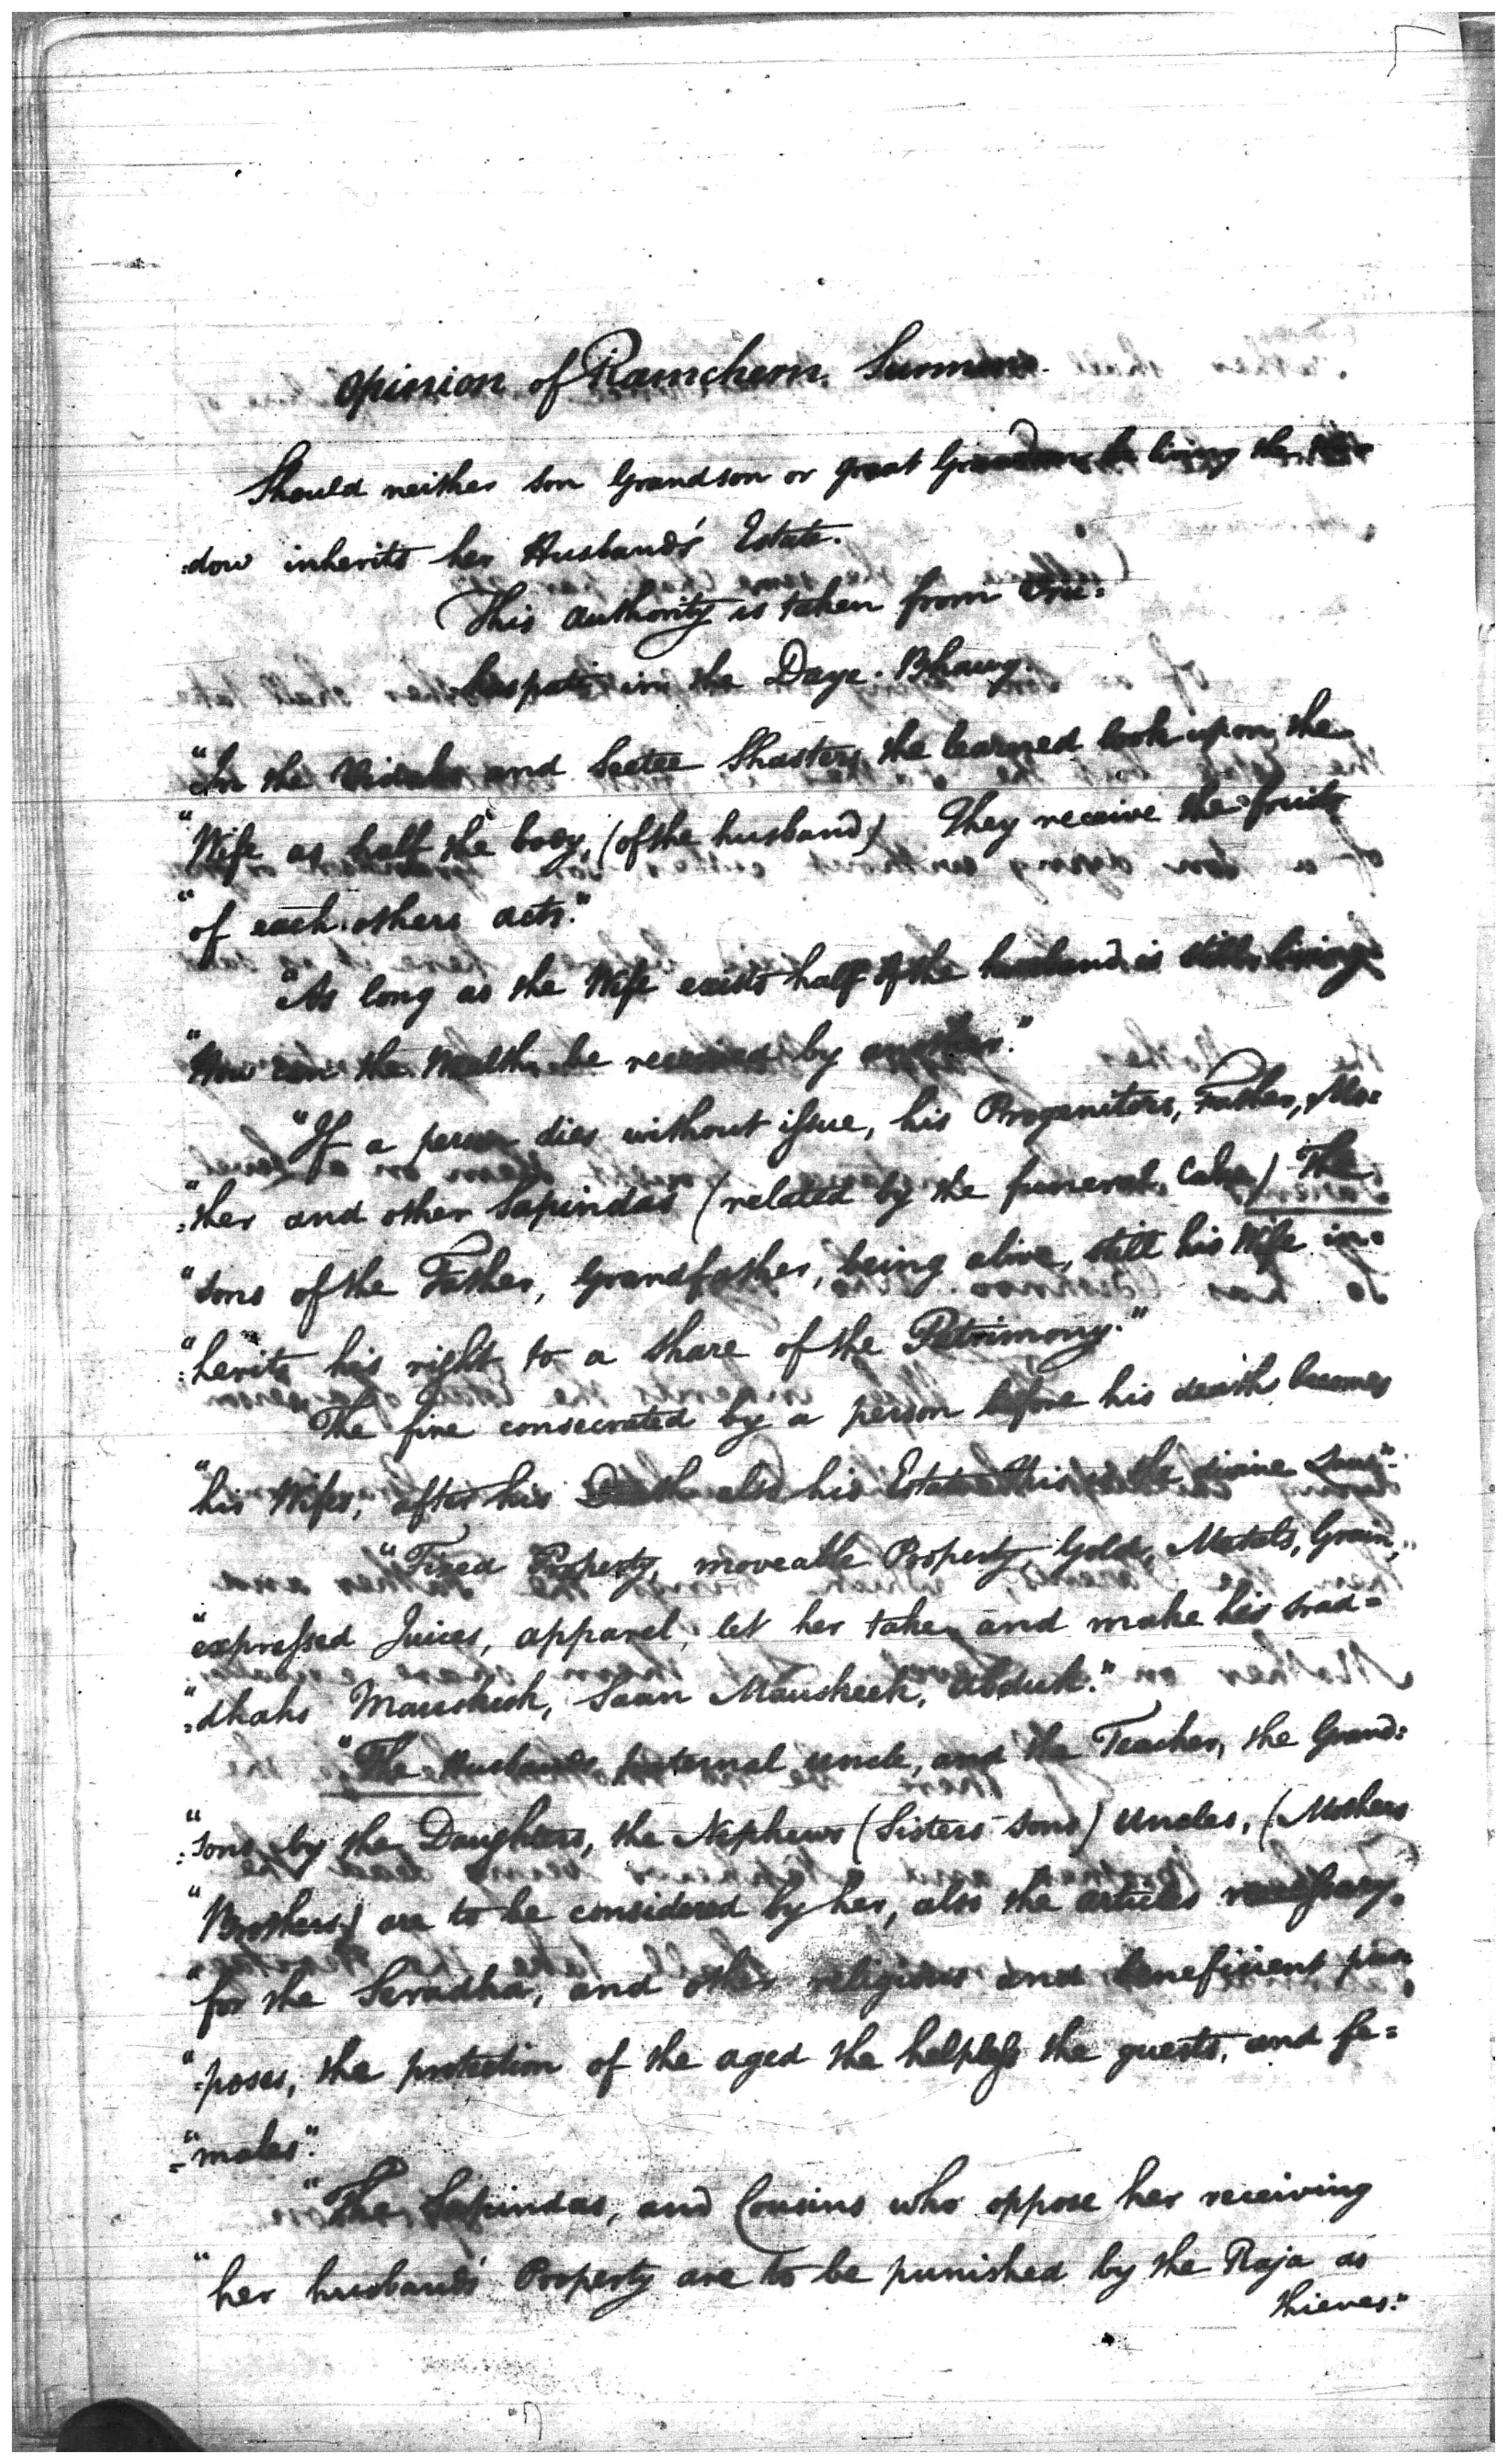 Opinion of Ramchern Surmono.
Should neither son Grandson or great Grandson be living the wi=
=dow inherits her Husband's Estate.
This authority is taken from Vri=
haspati in the Daye Bhaug.
"In the and Seetee Shasters the learned look upon the
"Wife as half the body, (of the husband) They receive the fruits
"of each others acts."
"As long as the Wife exists half of the husband is still living
"How can the Wealth be received by another."
"If a person dies without issue, his Progenitors, Father, Mo=
"=ther and other Sapindas (related by the funeral Cake) The
"sons of the Father, Grandfather, being alive, still his Wife in=
"=herits his right to a share of the Patrimony."
The fire consecrated by a person before his death becomes
"his Wifes, after his Death also his Estate this is the divine Law"
"Fixed Property, moveable Property, Gold, Metals, Grain,
"expressed Juices, apparel, let her take and make his srad=
"=dhahs Mauskeek, Saan Mauskeek, Abduk."
"The Husbands paternal uncle, and the Teacher, the Grand=
"=sons by the Daughters, the Nephews (Sisters sons) Uncles, (Mothers
"Brothers) are to be considered by her, also the articles necessary
"for the Seradha, and other religious and beneficient pur
"=poses, the protection of the aged the helpless the guests, and fe=
=“males".
"The Sapindas, and Cousins who oppose her receiving
"her husband's Property are to be punished by the Raja as
thieves."